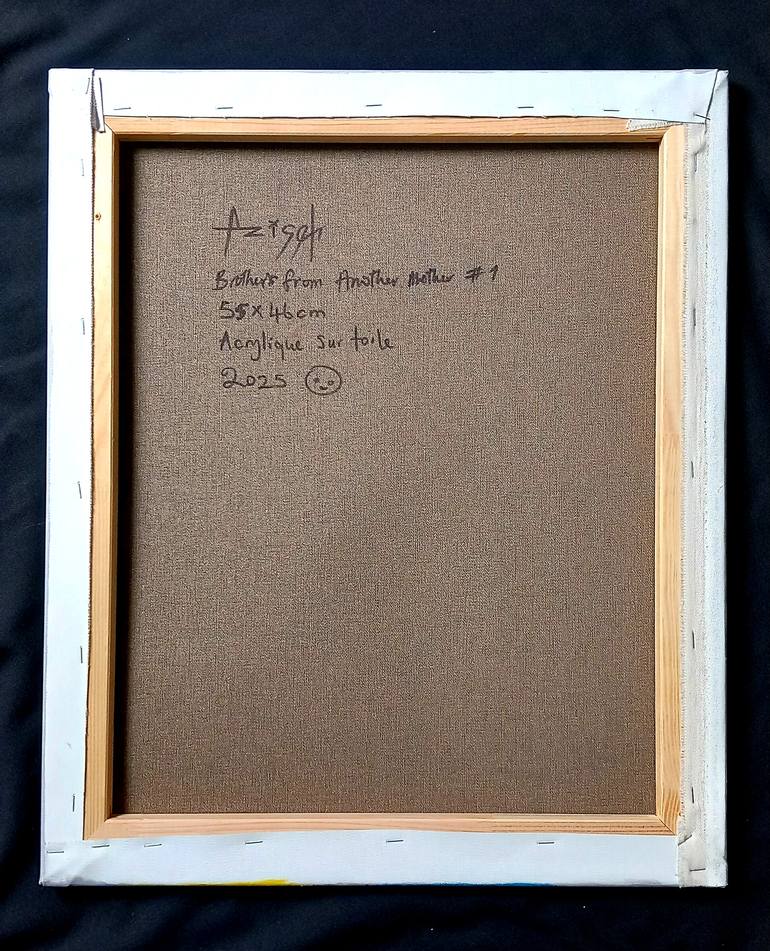 Brothers from Another Mother #1
55x46cm
Acrylique sur toile
2025